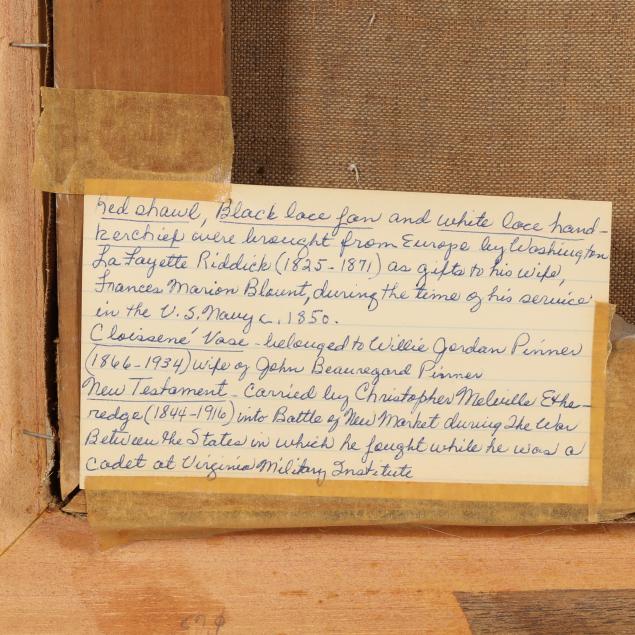 Red shawl, Black lace fan and white lace hand-
kerchief were brought from Europe by Washington
La Fayette Riddick (1825-1871) as gifts to his wife,
Frances Marion Blount, during the time of his service
in the U.S. Navy c. 1850.
Cloissené Vase - belonged to Willie Jordan Pinner
(1866-1934) wife of John Beauregard Pinner
New Testament - Carried by Christopher Melville Ethe-
redge (1844-1916) into Battle of New Market during The War
Between the States in which he fought while he was a
cadet at Virginia Military Institute